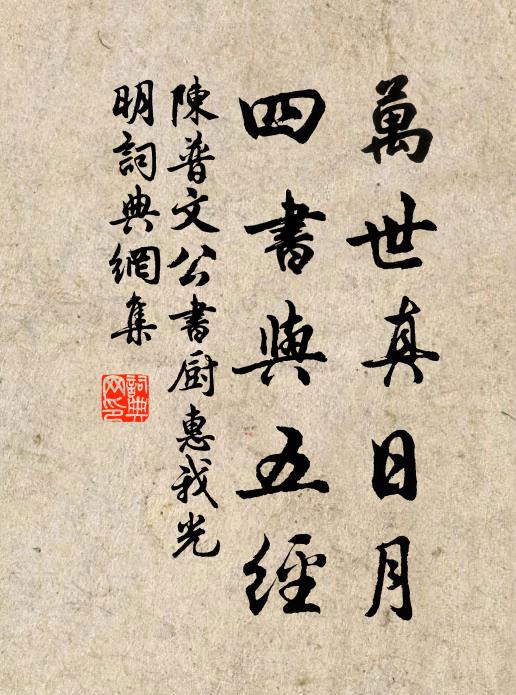 萬世真日月
四書與五經
陳普文公書厨惠我光
明詞典網集
詞典网印